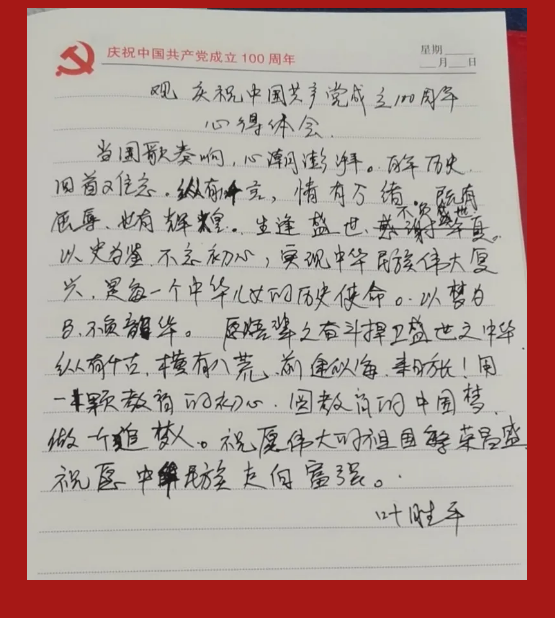 庆祝中国共产党成立100周年
星期
月 日
观 庆祝中国共产党成立100周年
心得体会
当国歌奏响,心潮澎湃。百年历史
回首 信念。纵有千言,情有万绪。既有
屈辱,也有辉煌。生逢盛世,不负盛世,感谢华夏。
以史为鉴,不忘初心,实现中华民族伟大复
兴,是每一个中华儿女的历史使命。以梦为
马,不负韶华。愿吾辈之奋斗捍卫盛世之中华
纵有千古,横有八荒,前途似海,来日方长!用
一颗教育的初心,圆教育的中国梦,
做一个追梦人。祝愿伟大的祖国繁荣昌盛,
祝愿中华民族走向富强。
叶胜平